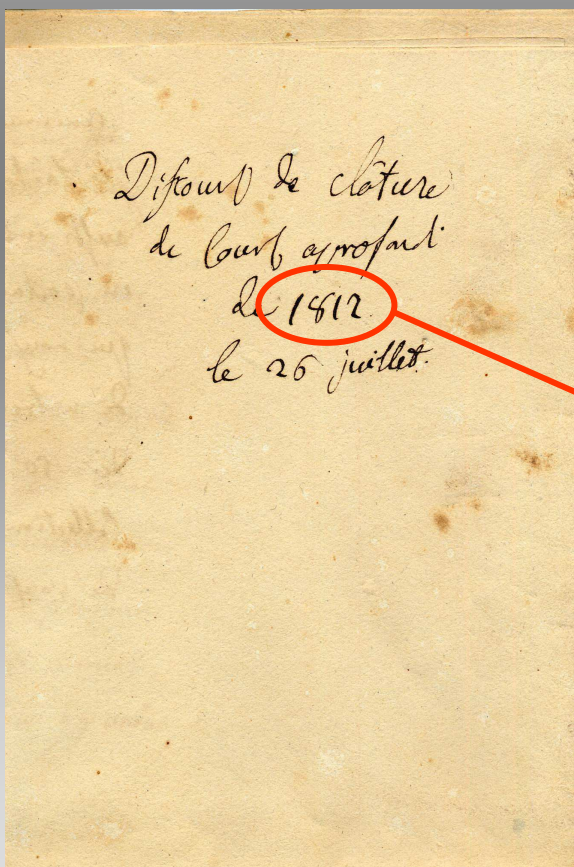 Discours de clôture
de Cours approfondi
de 1812
le 26 juillet.